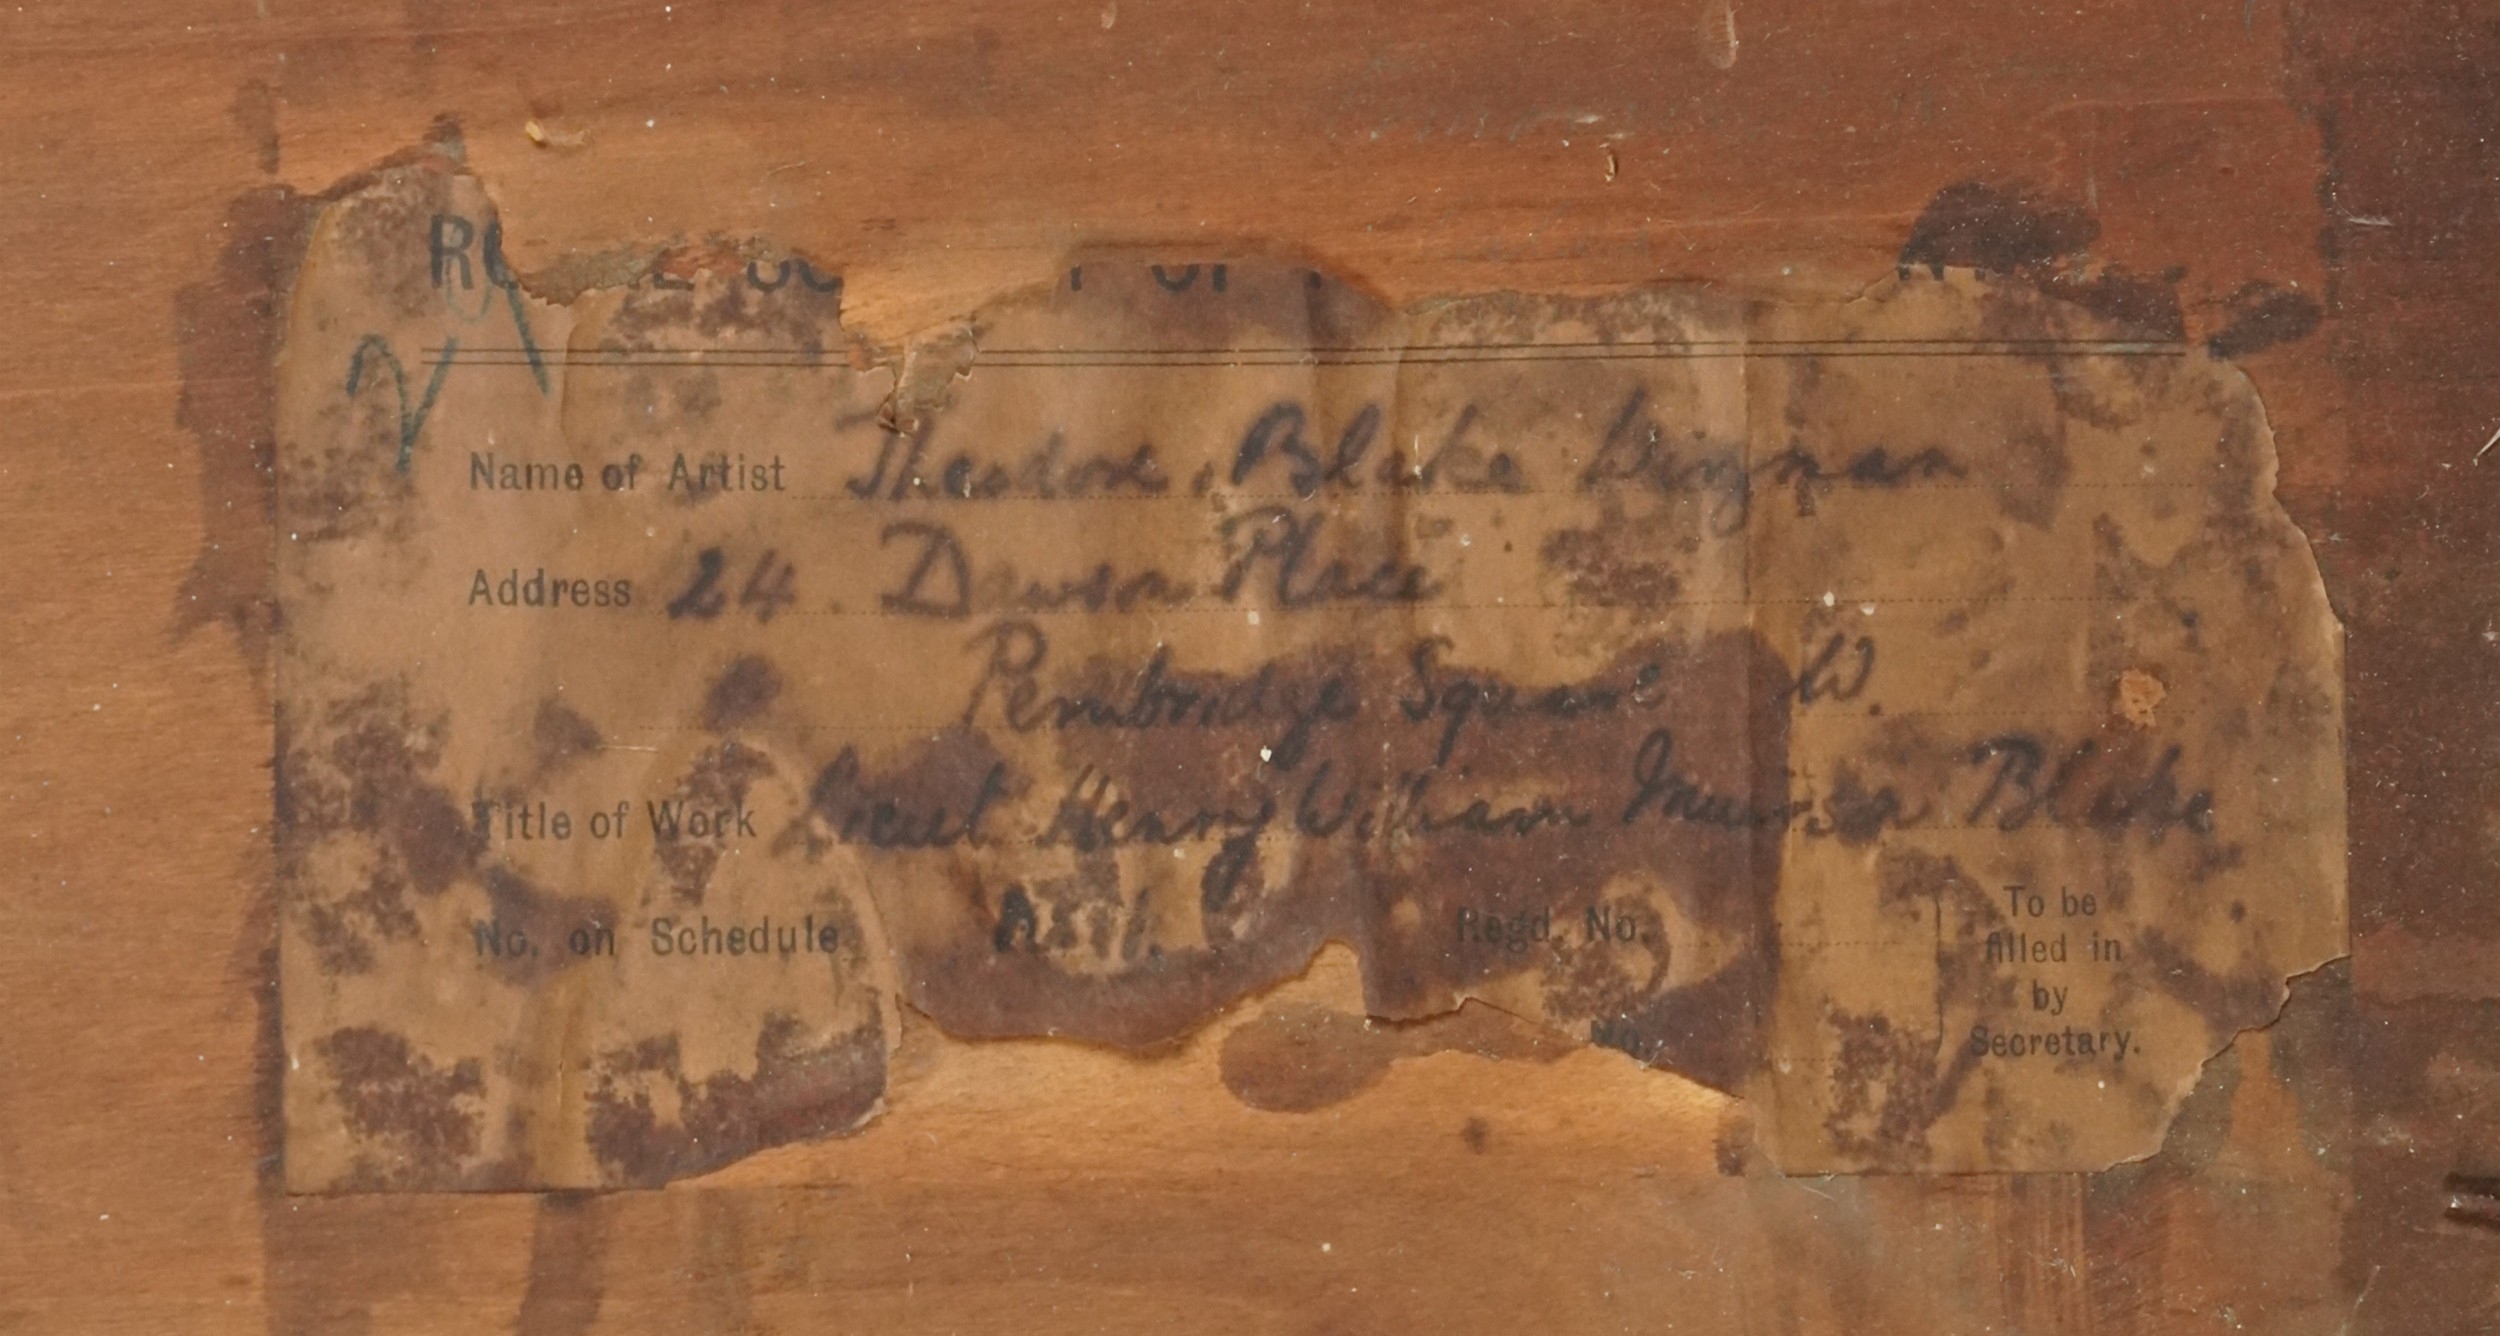 Name of Artist Theodore Blake Wirgman
Address 24 Dawson Place
Pembridge Square W.
Title of Work Lieut Henry William Blake
No. on Schedule Regd. No.
No.
To be
filled in
by
Secretary.